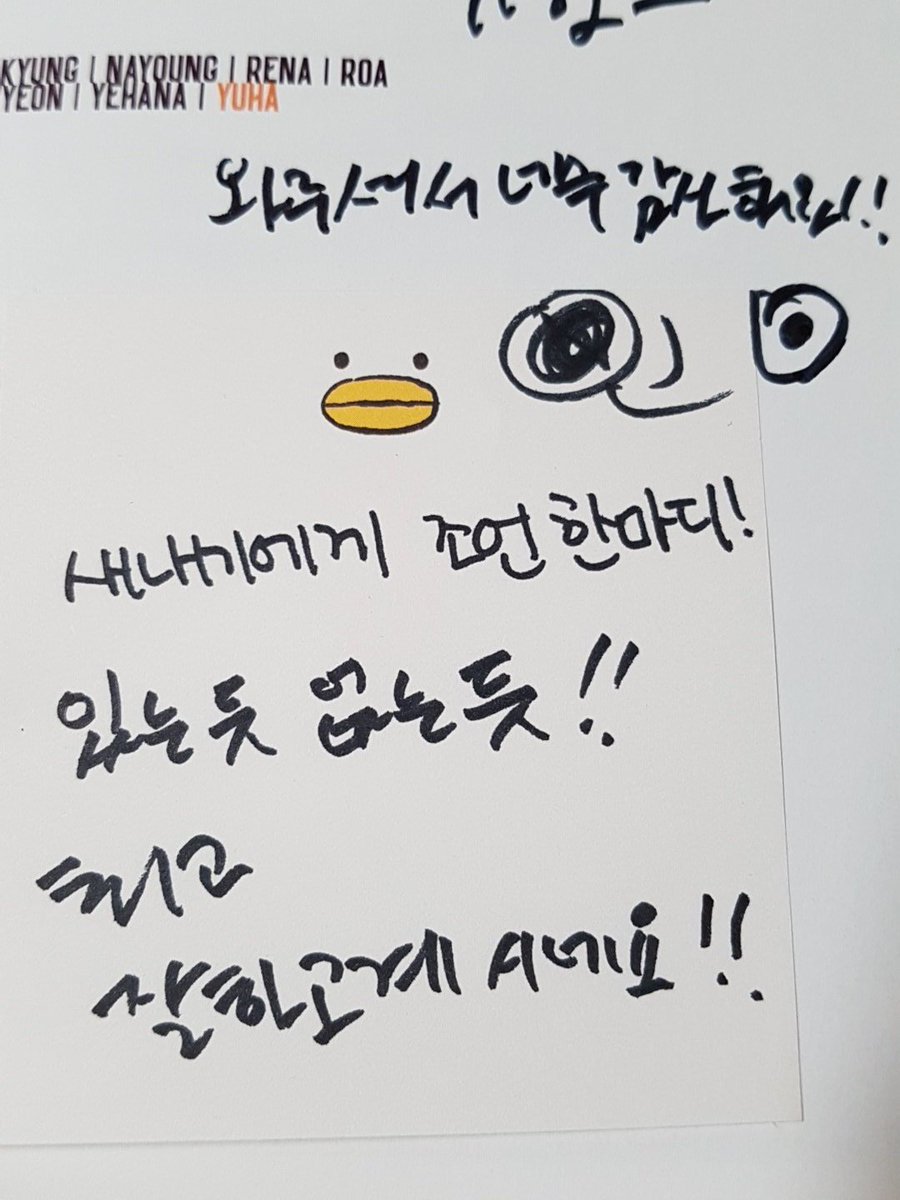 KYUNG | NAYOUNG | RENA | ROA
YEON | YEHANA | YUHA
와주셔서 너무 감사해요!!
새내기에게 조언 한마디!
있는듯 없는듯!!
그리고
잘하고계시네요!!